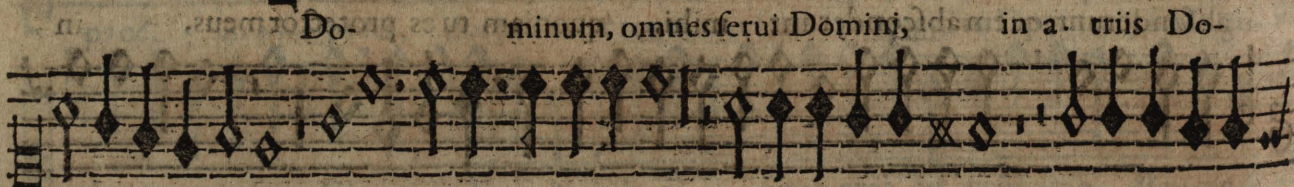 Do- minum, omnes serui Domini, in a- triis Do-